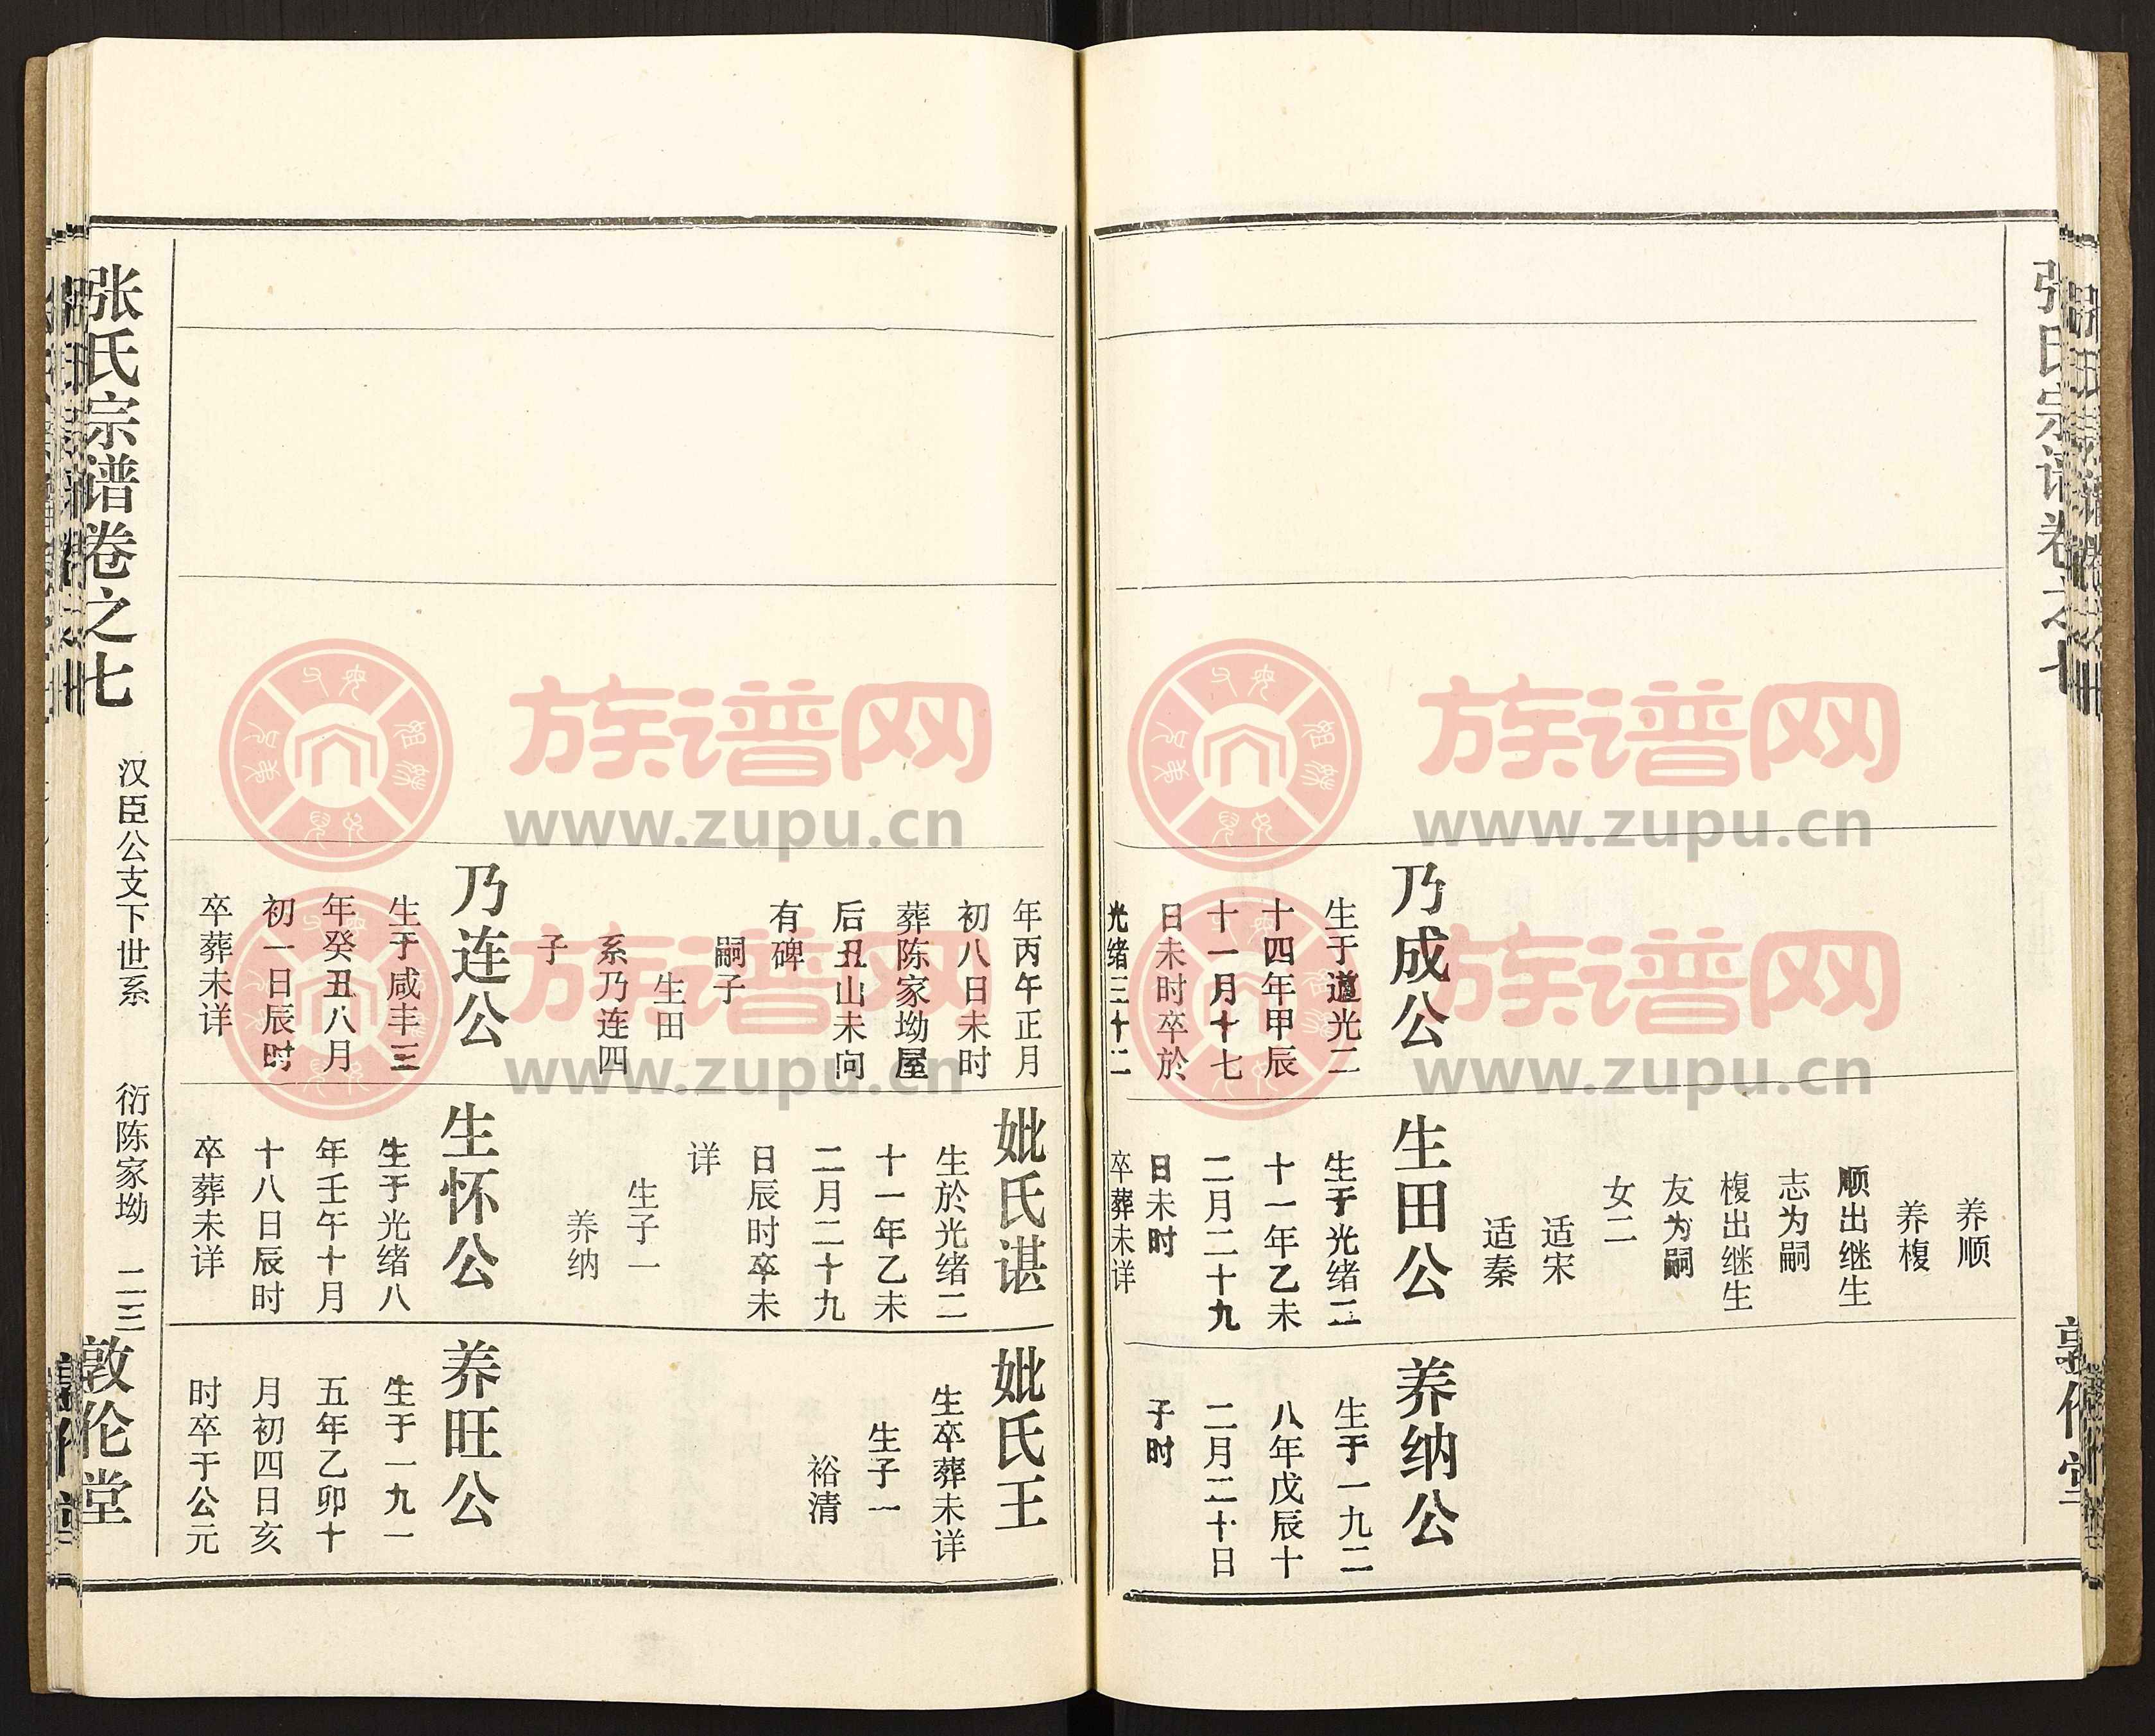 张氏宗谱卷之七
敦伦堂
乃成公
生于道光二
十四年甲辰
十一月十七
日未时卒於
光绪三十二
养顺
养榎
顺出继生
志为嗣
榎出继生
友为嗣
女二
适宋
适秦
生田公
生于光绪二
十一年乙未
二月二十九
日未时
卒葬未详
养纳公
生于一九二
八年戊辰十
二月二十日
子时
年丙午正月
初八日未时
葬陈家坳屋
后丑山未向
有碑
嗣子
生田
系乃连四
子
乃连公
生于咸丰三
年癸丑八月
初一日辰时
卒葬未详
妣氏谌
生於光绪二
十一年乙未
二月二十九
日辰时卒未
详
生子一
养纳
生怀公
生于光绪八
年壬午十月
十八日辰时
卒葬未详
妣氏王
生卒葬未详
生子一
裕清
养旺公
生于一九一
五年乙卯十
月初四日亥
时卒于公元
张氏宗谱卷之七
汉臣公支下世系
衍陈家坳
二三
敦伦堂
族谱网
www.zupu.cn
族谱网
www.zupu.cn
族谱网
www.zupu.cn
族谱网
www.zupu.cn